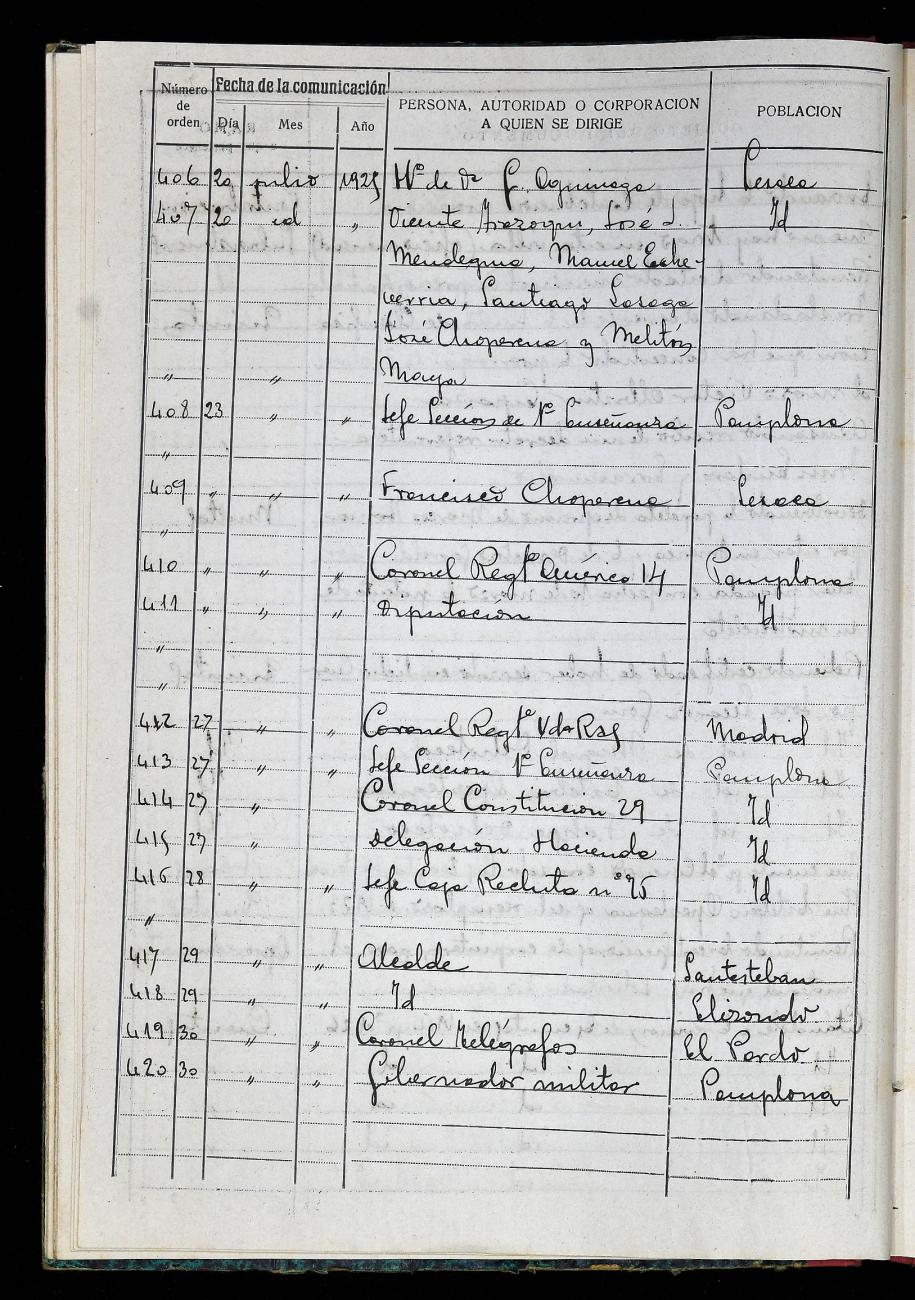 Número de orden Fecha de la comunicación PERSONA, AUTORIDAD O CORPORACION A QUIEN SE DIRIGE POBLACION
Día Mes Año
406 20 julio 1925 Hº de Vª F. Aguinaga Lesaca
407 20 id " Vicente Irazoqui, José J. Id
Mendeguia, Manuel Eche-
verria, Santiago Lesaga
José Choperena y Melitón
" " Maya
408 23 " " Jefe Sección de 1ª Enseñanza Pamplona
"
409 " " " Francisco Choperena Lesaca
"
410 " " " Coronel Regtº América 14 Pamplona
411 " " " Diputacion Id
"
"
412 27 " " Coronel Regtº Vd-Ras Madrid
413 27 " " Jefe Sección 1ª Enseñanza Pamplona
414 27 " Coronel Constitucion 29 Id
415 27 " Delegación Hacienda Id
416 28 " " Jefe Caja Recluta nº 76 Id
"
417 29 " " Alcalde Santesteban
418 29 " " Id Elizondo
419 30 " " Coronel Telégrafos El Pardo
420 30 " " Gobernador militar Pamplona